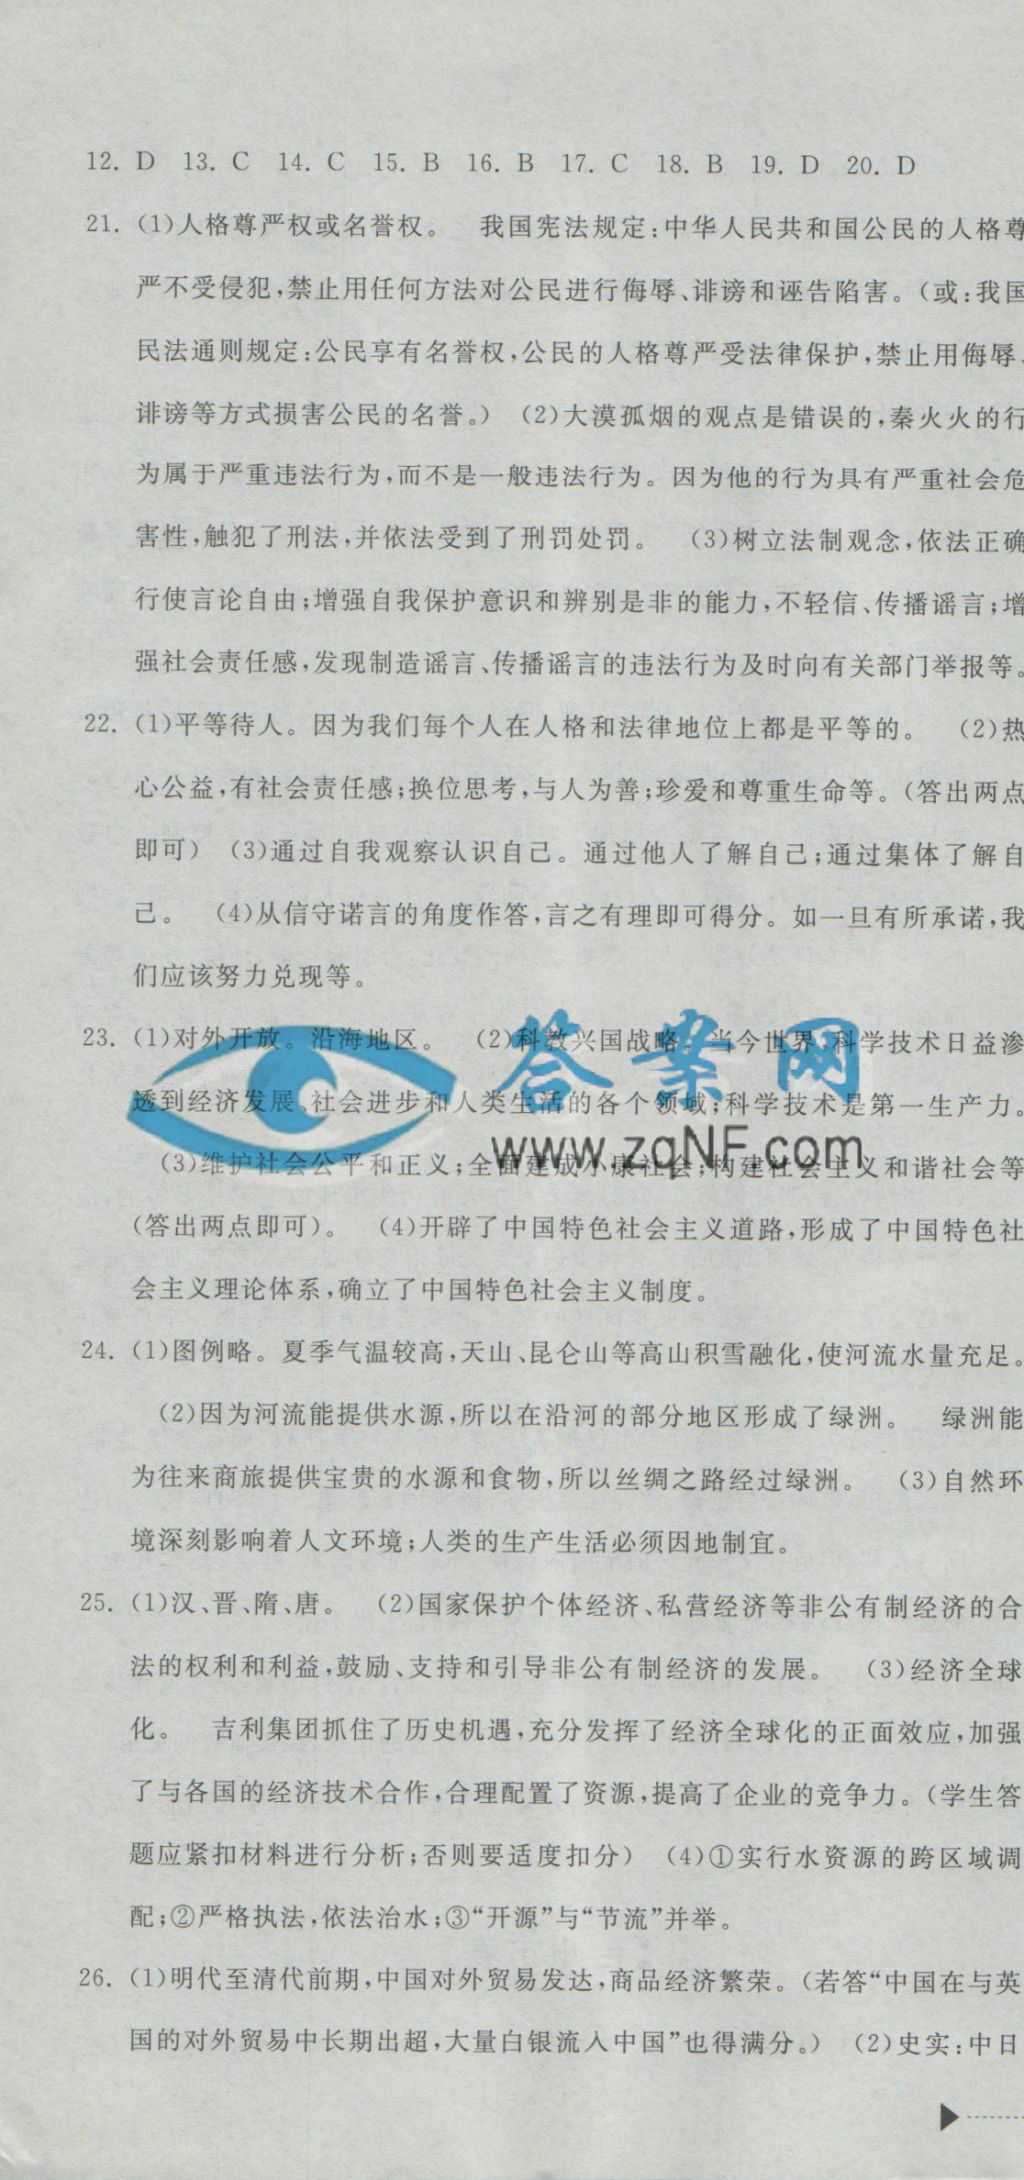 12. D 13. C 14. C 15. B 16. B 17. C 18. B 19. D 20. D
21. (1)人格尊严权或名誉权。 我国宪法规定:中华人民共和国公民的人格尊
严不受侵犯,禁止用任何方法对公民进行侮辱、诽谤和诬告陷害。(或:我国
民法通则规定:公民享有名誉权,公民的人格尊严受法律保护,禁止用侮辱、
诽谤等方式损害公民的名誉。) (2)大漠孤烟的观点是错误的,秦火火的行
为属于严重违法行为,而不是一般违法行为。因为他的行为具有严重社会危
害性,触犯了刑法,并依法受到了刑罚处罚。 (3)树立法制观念,依法正确
行使言论自由;增强自我保护意识和辨别是非的能力,不轻信、传播谣言;增
强社会责任感,发现制造谣言、传播谣言的违法行为及时向有关部门举报等。
22. (1)平等待人。因为我们每个人在人格和法律地位上都是平等的。 (2)热
心公益,有社会责任感;换位思考,与人为善;珍爱和尊重生命等。(答出两点
即可) (3)通过自我观察认识自己。通过他人了解自己;通过集体了解自
己。 (4)从信守诺言的角度作答,言之有理即可得分。如一旦有所承诺,我
们应该努力兑现等。
23. (1)对外开放。沿海地区。 (2)科教兴国战略。当今世界,科学技术日益渗
透到经济发展、社会进步和人类生活的各个领域;科学技术是第一生产力。
(3)维护社会公平和正义;全面建成小康社会;构建社会主义和谐社会等
(答出两点即可)。 (4)开辟了中国特色社会主义道路,形成了中国特色社
会主义理论体系,确立了中国特色社会主义制度。
24. (1)图例略。夏季气温较高,天山、昆仑山等高山积雪融化,使河流水量充足。
(2)因为河流能提供水源,所以在沿河的部分地区形成了绿洲。 绿洲能
为往来商旅提供宝贵的水源和食物,所以丝绸之路经过绿洲。 (3)自然环
境深刻影响着人文环境;人类的生产生活必须因地制宜。
25. (1)汉、晋、隋、唐。 (2)国家保护个体经济、私营经济等非公有制经济的合
法的权利和利益,鼓励、支持和引导非公有制经济的发展。 (3)经济全球
化。 吉利集团抓住了历史机遇,充分发挥了经济全球化的正面效应,加强
了与各国的经济技术合作,合理配置了资源,提高了企业的竞争力。(学生答
题应紧扣材料进行分析;否则要适度扣分) (4)①实行水资源的跨区域调
配;②严格执法,依法治水;③“开源”与“节流”并举。
26. (1)明代至清代前期,中国对外贸易发达,商品经济繁荣。(若答“中国在与英
国的对外贸易中长期出超,大量白银流入中国”也得满分。) (2)史实:中日
答案网
www.zqNF.com